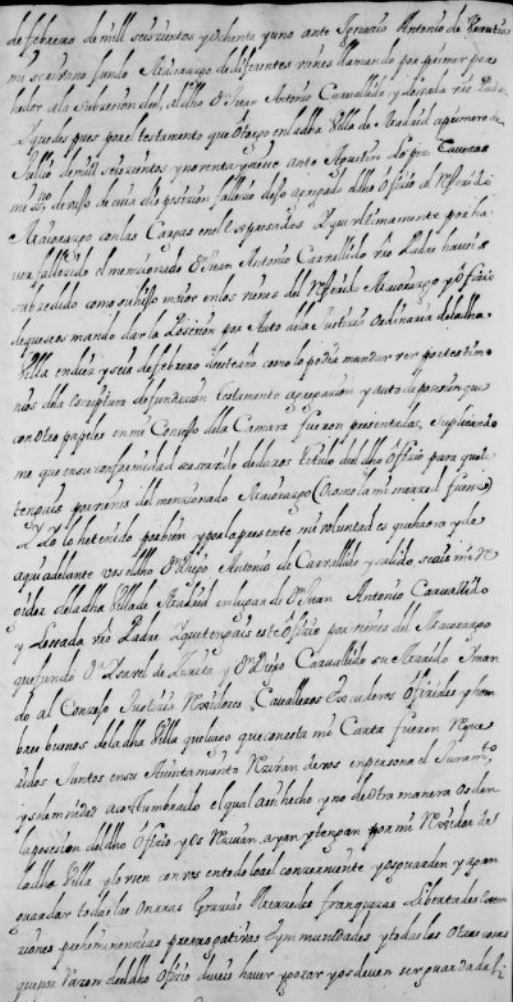 de febrero de mill seiscientos y ochenta y uno ante Ignacio Antonio de
mi scrivano fundo Maiorazgo de diferentes vienes llamando por primer posse
hedor a la subcesion del, al dho Dn Juan Antonio Carvallido y Lossada vro Padre
Y que despues por el testamento que otorgo en la dha Villa de Madrid a primero de
Jullio de mill seiscientos y noventa y nueve ante Agustin Lopez
mi sno, devajo de cuia disposicion fallecio dejo agregado el dho Oficio al referido
Maiorazgo con las Cargas en el expresadas Y que ultimamente por ha
ver fallecido el mencionado Dn Juan Antonio Carvallido vro Padre haveis
subcedido como su hijo maior en los vienes del referido Maiorazgo y Oficio
de que se os mando dar la Posesion por Auto de la Justicia Ordinaria de la dha
Villa en diez y seis de febrero deeste año como lo podia mandar ver por testimo
nios de la escriptura de fundacion testamento agregacion y auto de posesion que
con otros papeles en mi Consejo de la Camara fueron presentados, Suplicando
me que en su conformidad sea servido de daros titulo del dho Oficio para que le
tengais por vienes del mencionado Maiorazgo (o como la mi merced fuese)
Y Yo lo he tenido por bien y por la presente mi voluntad es que haora y de
aqui adelante vos el dho Dn Diego Antonio de Carvallido y seais mi Re
gidor de la dha Villa de Madrid en lugar de Dn Juan Antonio Carvallido
y Lossada vro Padre Y que tengais este Oficio por vienes del Maiorazgo
que fundo Da Ysavel de Zurita y Dn Diego Carvallido su Marido Y man
do al Consejo Justicia Regidores Cavalleros Escuderos Oficiales y hom
bres buenos de la dha Villa que luego que con esta mi Carta fueren reque
ridos Juntos en su Aiuntamiento recivan de vos en persona el Juramto
y solemnidad acostumbrado el qual asi hecho y no de otra manera os den
la posesion del dho Oficio y os recivan, ayan y tengan por mi Regidor de
la dha Villa y lo usen con vos en todo lo a el concerniente y os guarden y agan
guardar todas las onrras Gracias Mercedes franquezas Libertades Exem
ciones preheminencias prerrogativas e ymmunidades y todas las otras cosas
que por razon del dho Oficio deveis haver y gozar y os deven ser guardadas